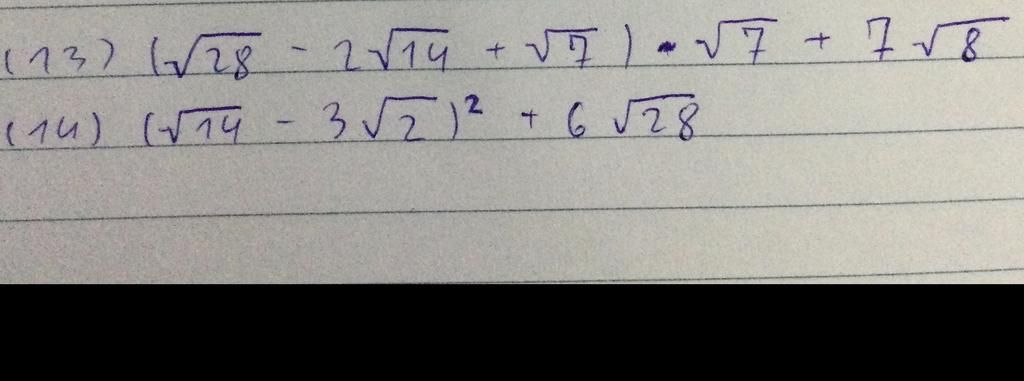 (13) (√28 - 2√14 + √7) • √7 + 7√8
(14) (√14 - 3√2)² + 6√28